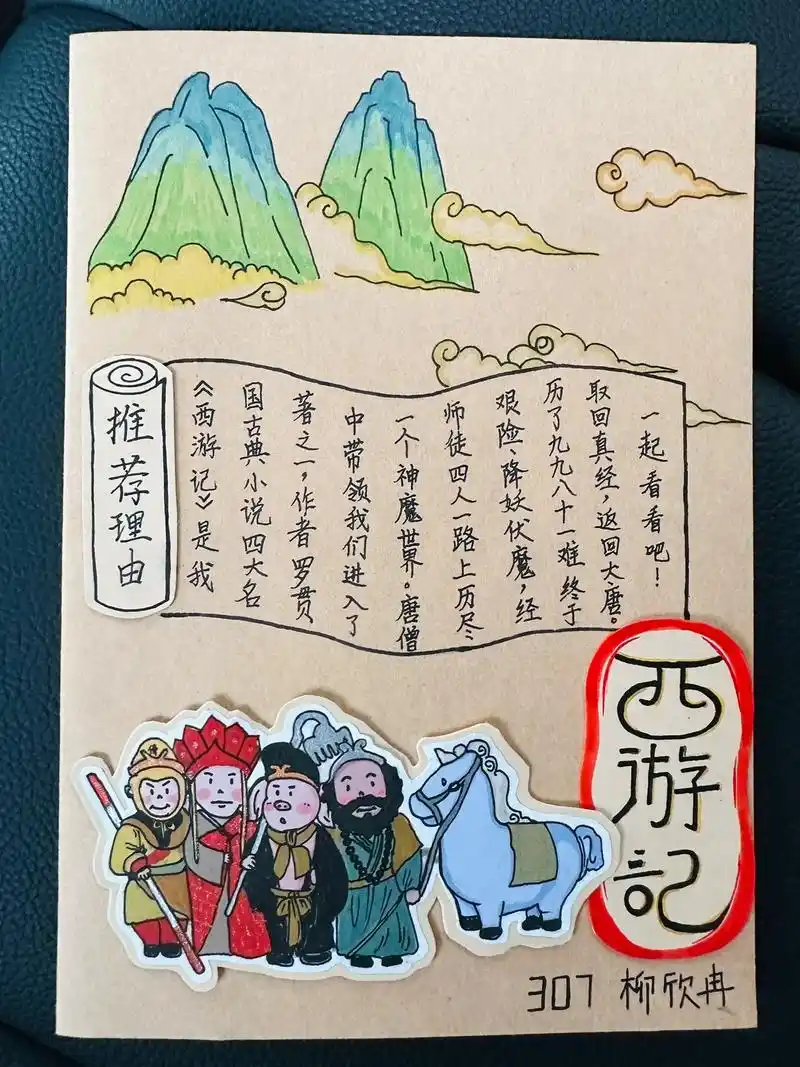 推荐理由
《西游记》是我
国古典小说四大名
著之一，作者罗贯
中带领我们进入了
一个神魔世界。唐僧
师徒四人一路上历尽
艰险、降妖伏魔，经
历了九九八十一难终于
取回真经，返回大唐。
一起看看吧！
西游記
307 柳欣冉